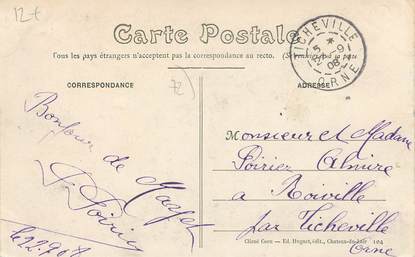 12+
Carte Postale
Tous les pays étrangers n'acceptent pas la correspondance au recto.
TICHEVILLE
ORNE
CORRESPONDANCE
ADRESSE
Bonjour de
Poirier
le 22.9.08
Monsieur et Madame
Poirier Almire
a Roiville
par Ticheville
Orne
Cliché Cosn — Ed. Huguet, édit., Chateau-du-Loir 104